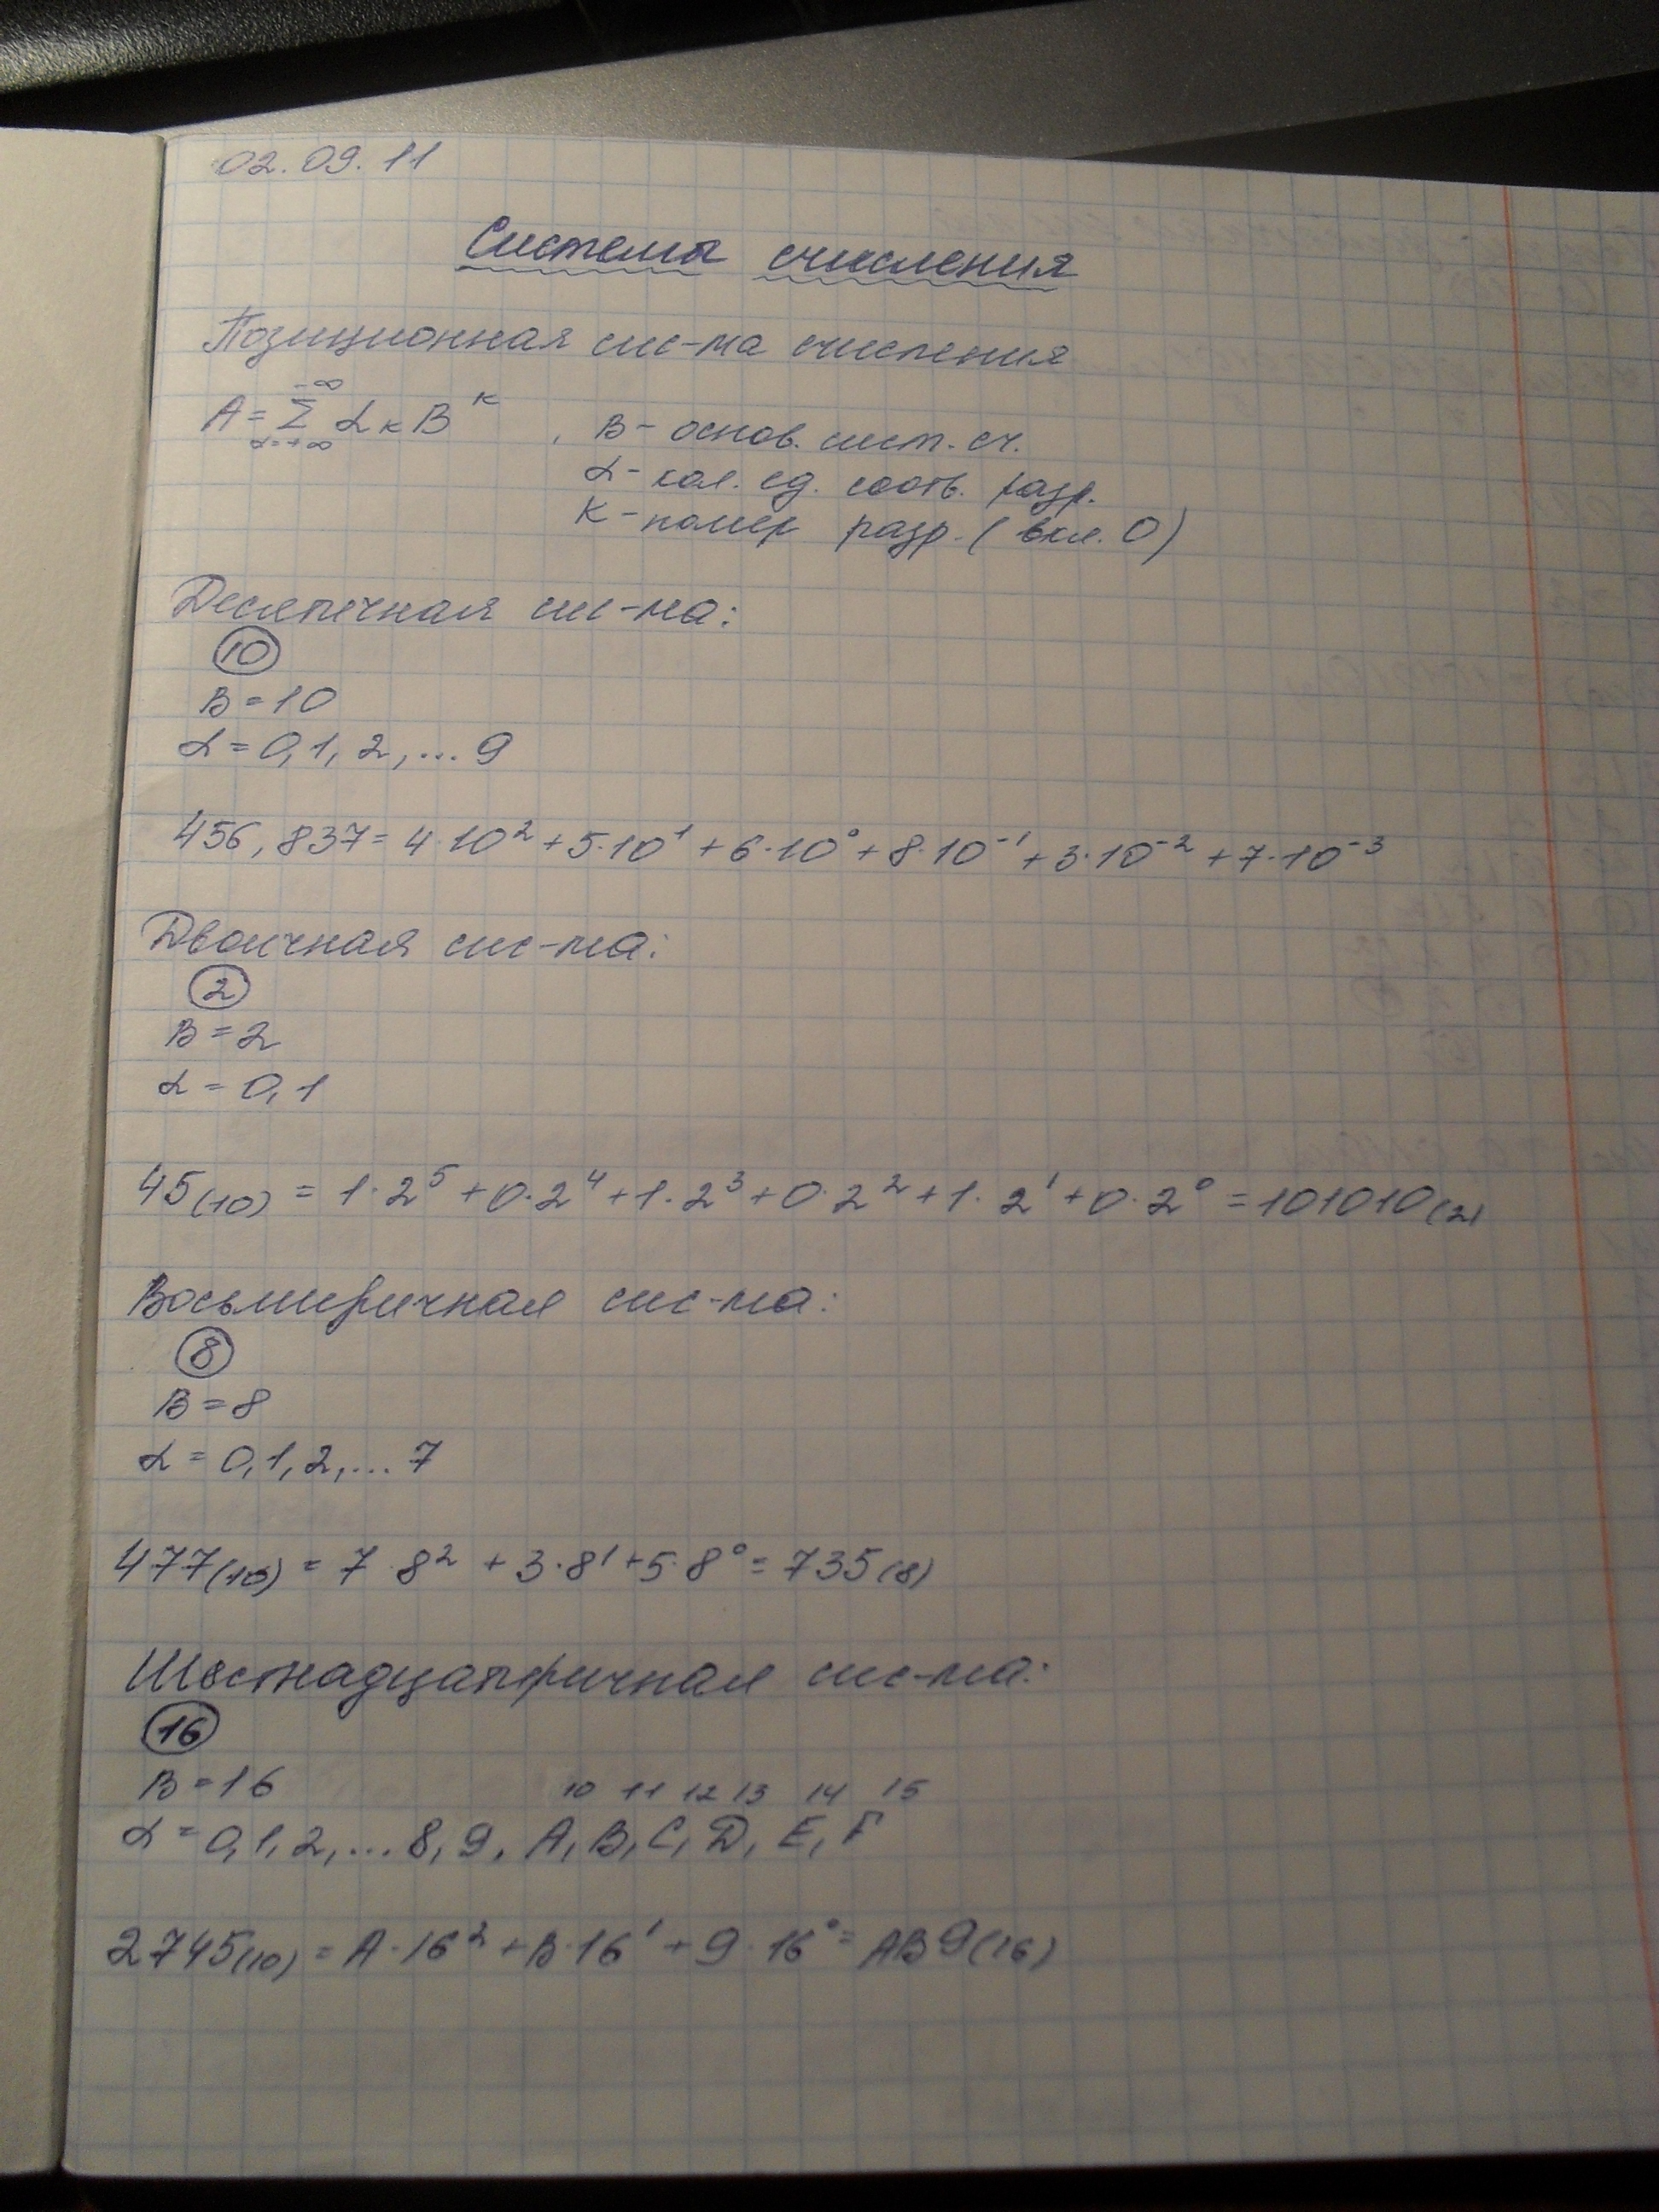 02.09.11
Система счисления
Позиционная сис-ма счисления
-∞
A = Σ αₖ B^к , B - основ. сист. сч.
α=+∞
α - кол. ед. соотв. разр.
К - номер разр. (вкл. 0)
Десятичная сис-ма:
10
B = 10
α = 0, 1, 2, ... 9
456,837 = 4·10² + 5·10¹ + 6·10⁰ + 8·10⁻¹ + 3·10⁻² + 7·10⁻³
Двоичная сис-ма:
2
B = 2
α = 0, 1
45(10) = 1·2⁵ + 0·2⁴ + 1·2³ + 0·2² + 1·2¹ + 0·2⁰ = 101010(2)
Восьмиричная сис-ма:
8
B = 8
α = 0, 1, 2, ... 7
477(10) = 7·8² + 3·8¹ + 5·8⁰ = 735(8)
Шестнадцатиричная сис-ма:
16
B = 16
10 11 12 13 14 15
α = 0, 1, 2, ... 8, 9, A, B, C, D, E, F
2745(10) = A·16² + B·16¹ + 9·16⁰ = AB9(16)